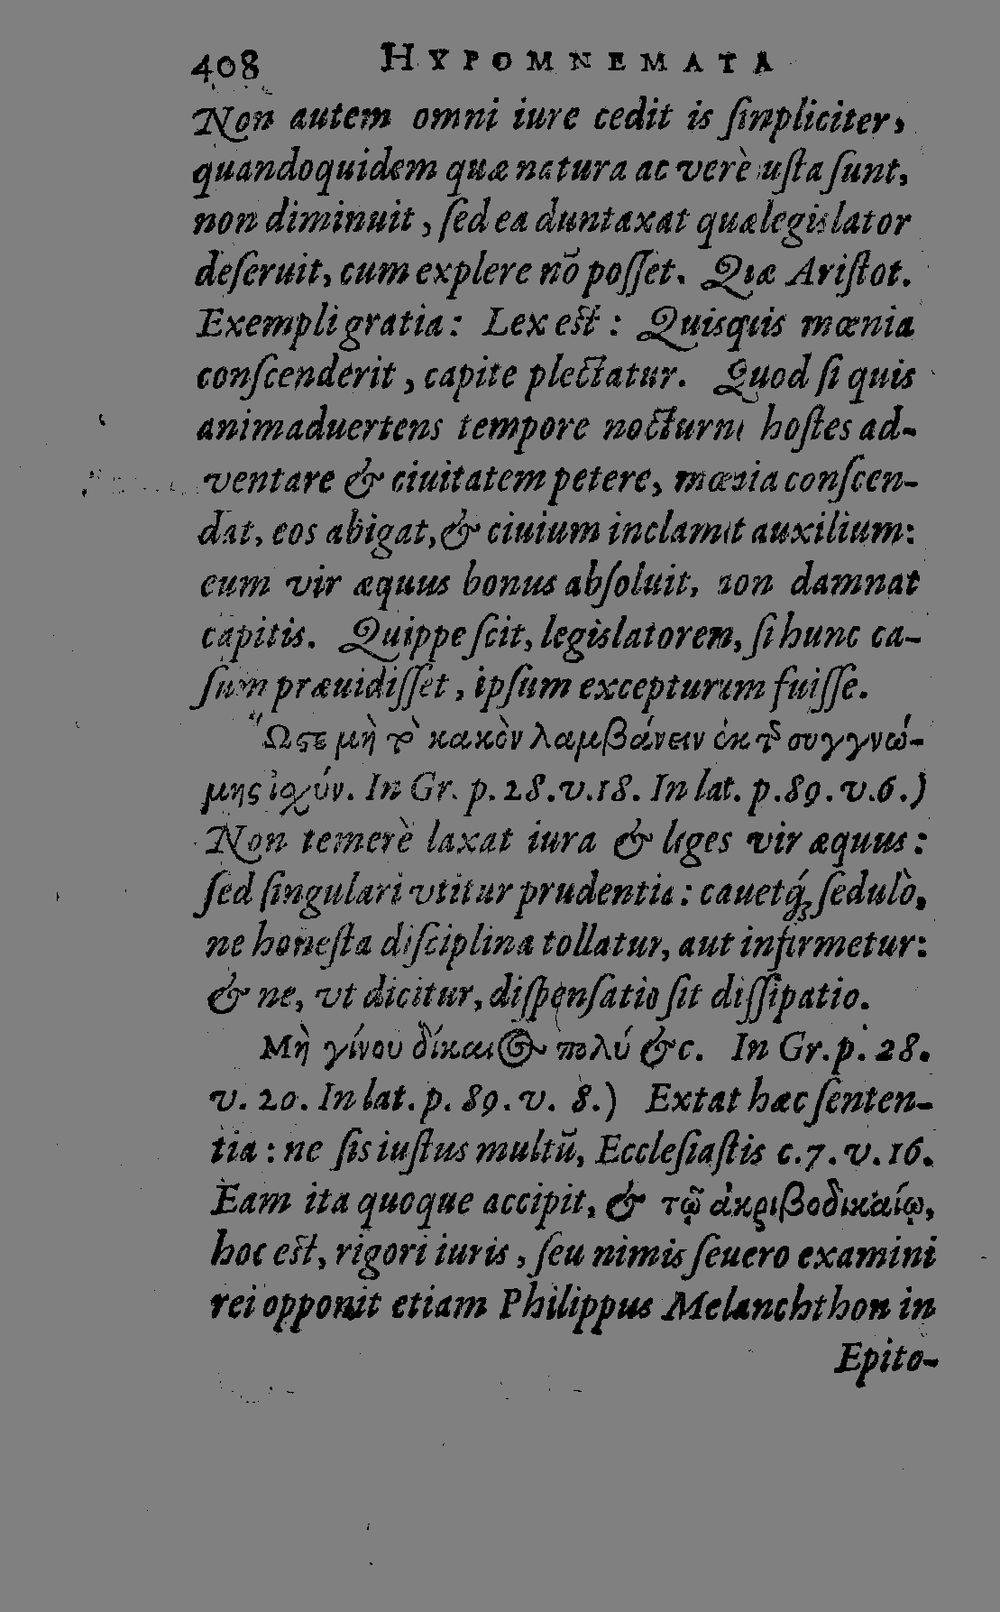 408 HYPOMNEMATA
Non autem omni iure cedit is ſimpliciter,
quandoquidem quæ natura ac verè iuſta ſunt,
non diminuit, ſed ea duntaxat quæ legislator
deſeruit, cum explere nõ poſſet. Quæ Ariſtot.
Exempli gratia: Lex eſt: Quisquis mœnia
conſcenderit, capite plectatur. Quod ſi quis
animaduertens tempore nocturni hoſtes ad-
ventare & ciuitatem petere, mœnia conſcen-
dat, eos abigat, & ciuium inclamet auxilium:
eum vir æquus bonus abſoluit, non damnat
capitis. Quippe ſcit, legislatorem, ſi hunc ca-
ſum præuidiſſet, ipſum excepturum fuiſſe.
Ὥϛε μὴ τὸ κακὸν λαμβάνειν ἐκ τῆς συγγνώ-
μης ἰσχύν. In Gr. p. 28. v. 18. In lat. p. 89. v. 6.)
Non temerè laxat iura & leges vir æquus:
ſed ſingulari vtitur prudentia: cauetq́; ſedulò,
ne honeſta diſciplina tollatur, aut infirmetur:
& ne, vt dicitur, diſpenſatio ſit diſſipatio.
Μὴ γίνου δίκαιος πολύ &c. In Gr. p. 28.
v. 20. In lat. p. 89. v. 8.) Extat hæc ſenten-
tia: ne ſis iuſtus multũ, Eccleſiaſtis c. 7. v. 16.
Eam ita quoque accipit, & τῷ ἀκριβοδικαίῳ,
hoc eſt, rigori iuris, ſeu nimis ſeuero examini
rei opponit etiam Philippus Melanchthon in
Epito-